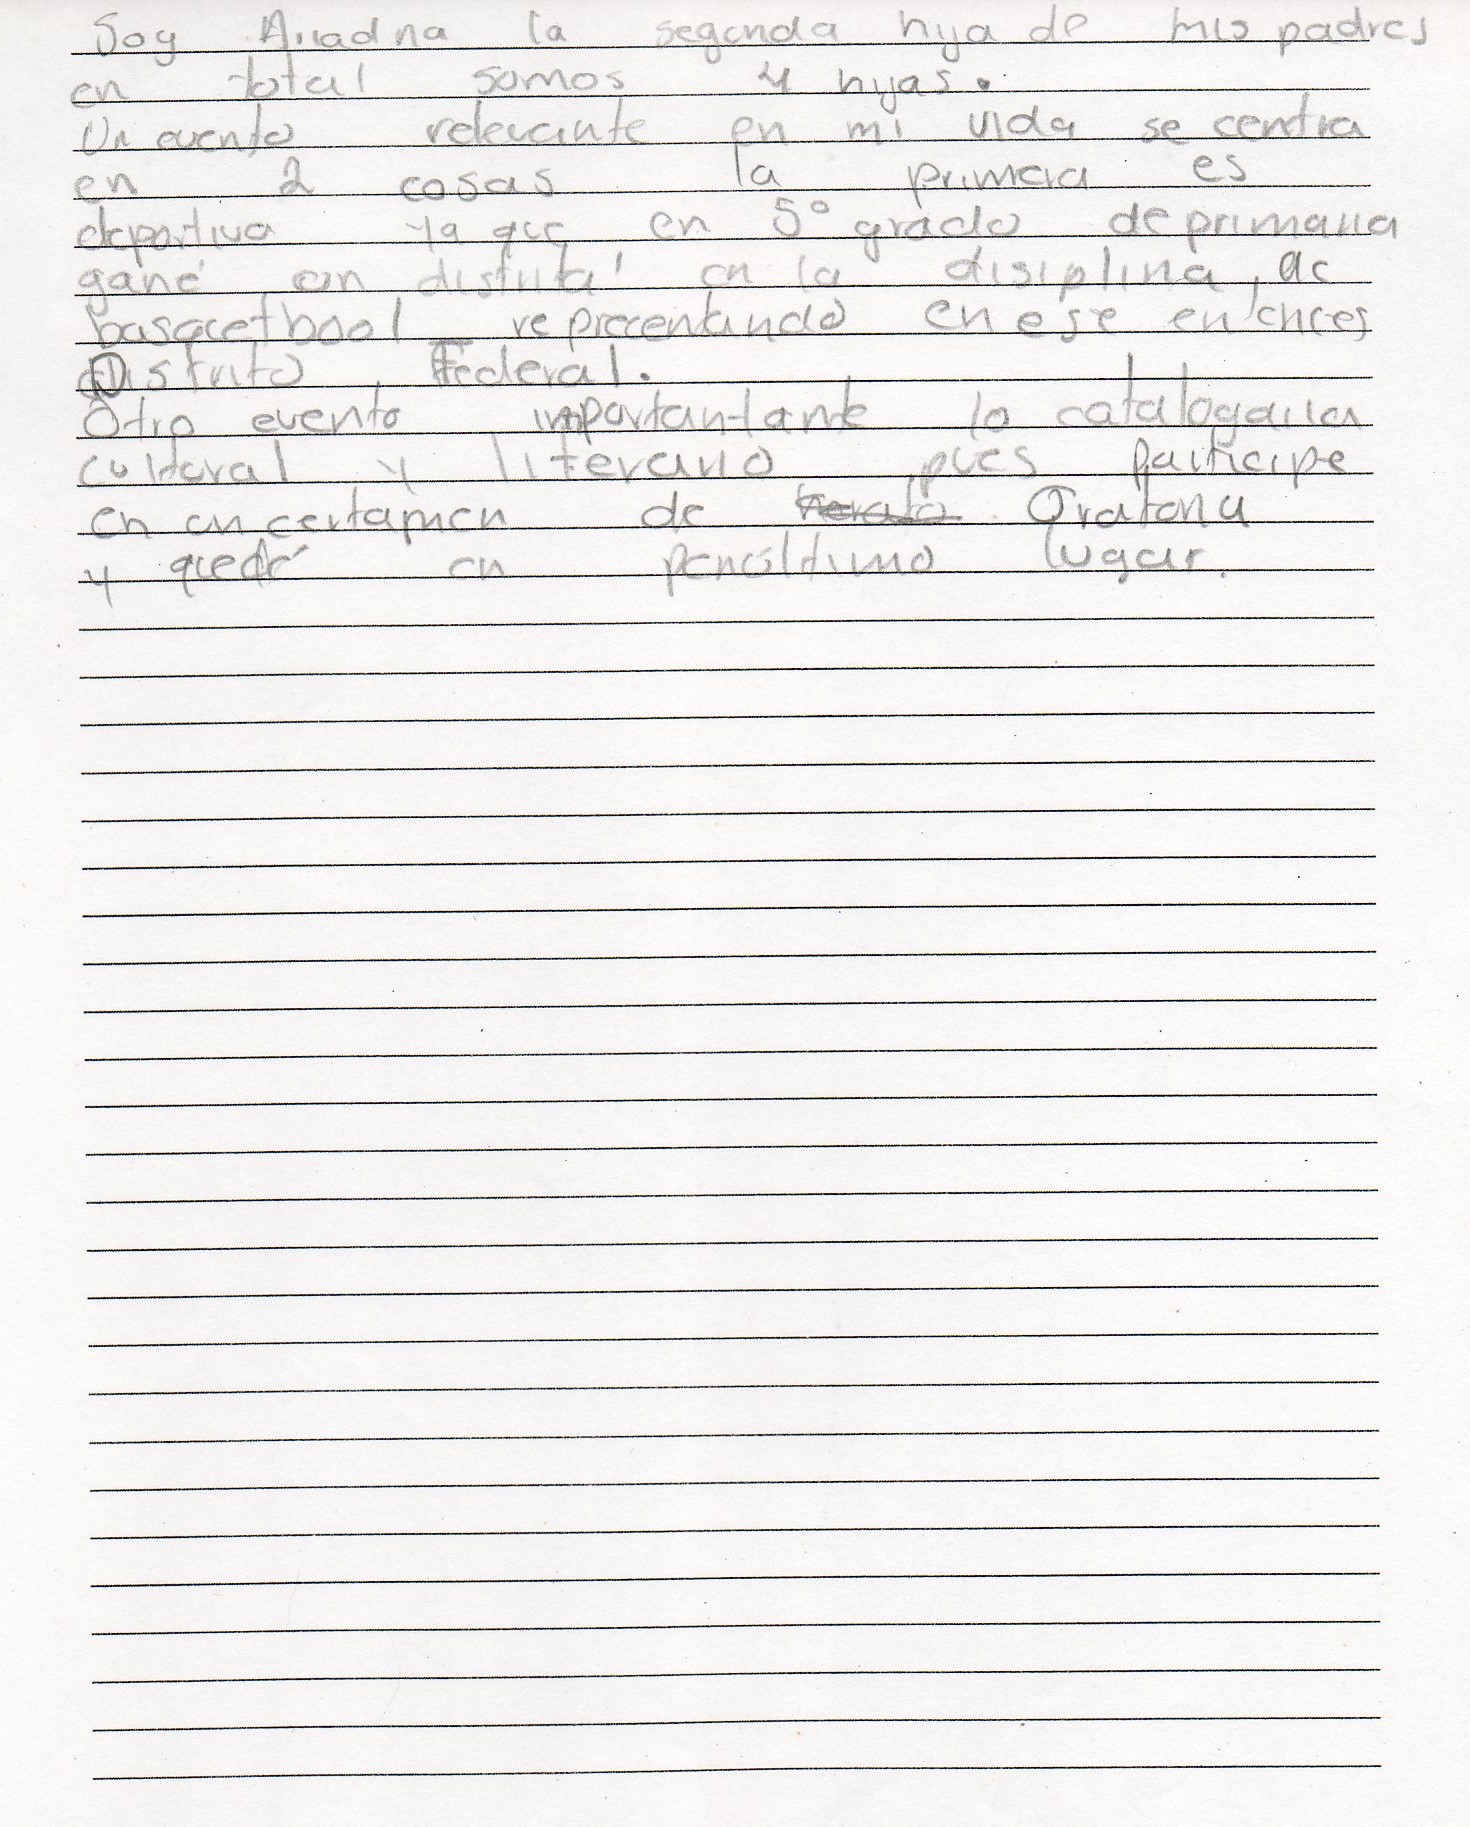 Soy Ariadna la segunda hija de mis padres
en total somos 4 hijas.
Un evento relevante en mi vida se centra
en 2 cosas la primera es
deportiva ya que en 5° grado de primaria
gané un distrital en la disiplina, de
basquetbool reprecentando en ese entonces
Distrito Federal.
Otro evento importantante lo catalogaria
cultural y literario pues participe
en un certamen de Oratoria
y quedé en penúltimo lugar.